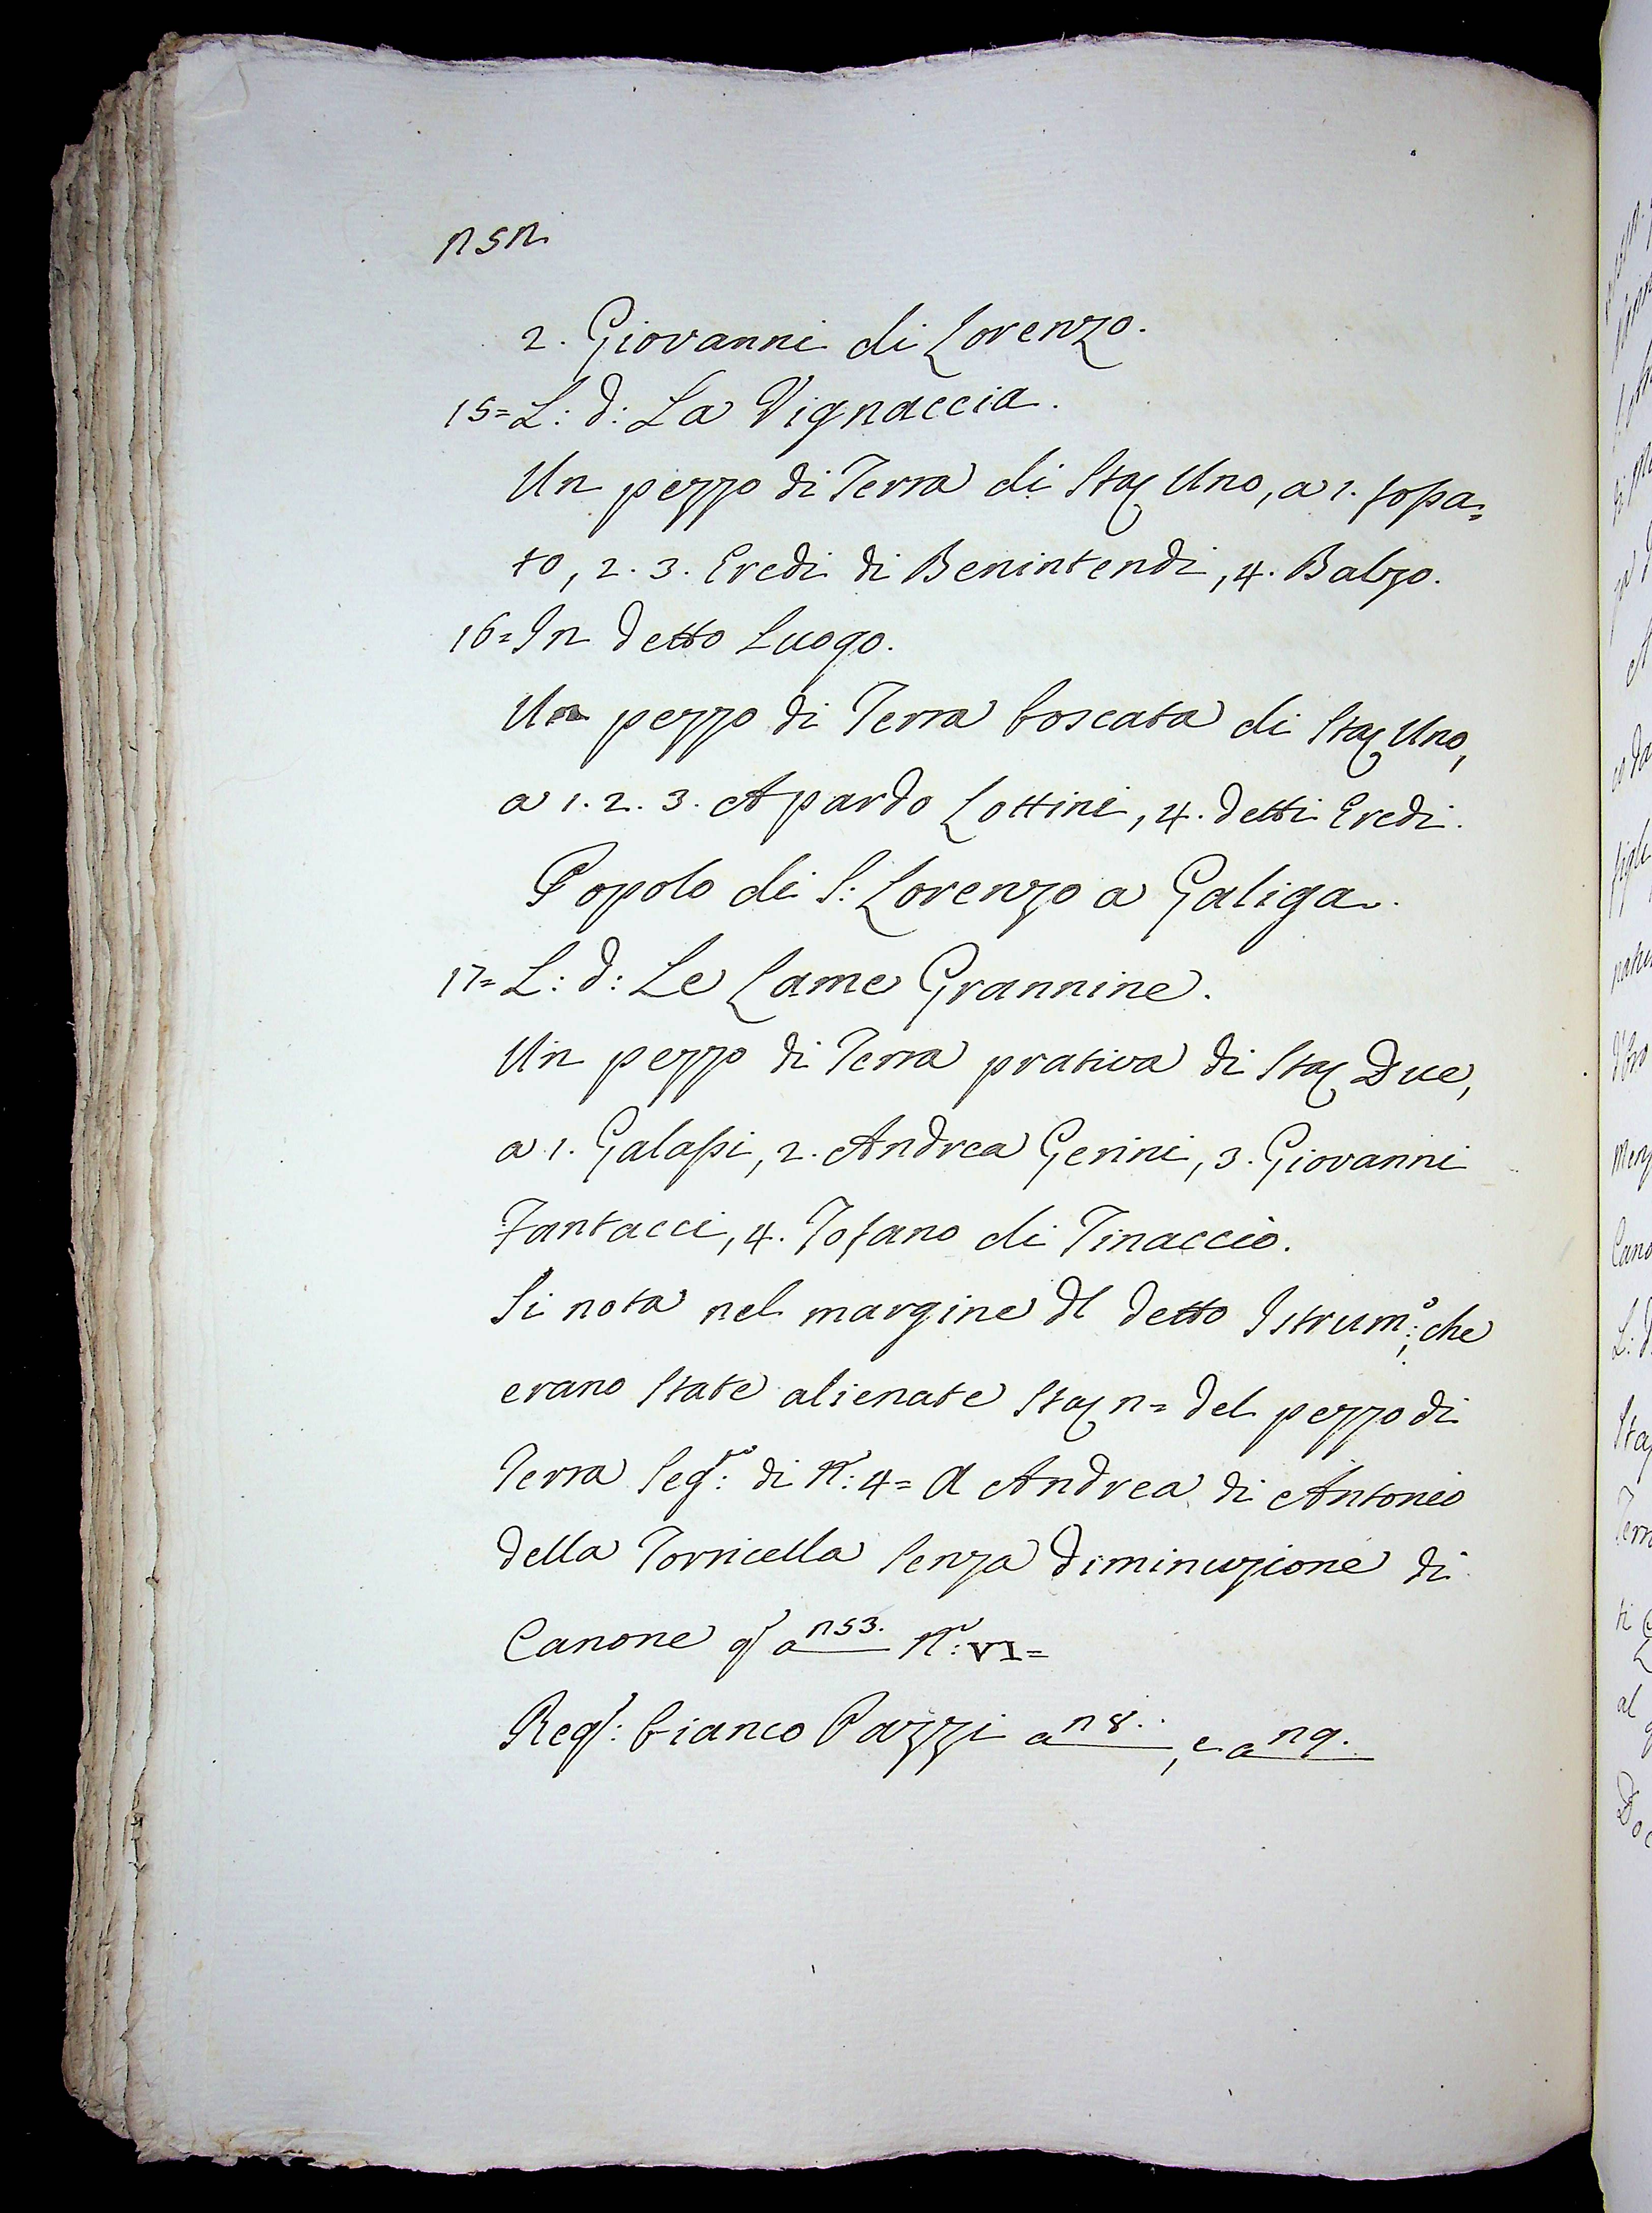 252
2. Giovanni di Lorenzo.
15= L: d: La Vignaccia.
Un pezzo di Terra di Staj Uno, a 1. fossa=
to, 2. 3. Eredi di Benintendi, 4. Balzo.
16= In detto Luogo.
Un pezzo di Terra boscata di Staj Uno,
a 1. 2. 3. Apardo Lottini, 4. detti Eredi.
Popolo di S: Lorenzo a Galiga.
17= L: d: Le Lame Grannine.
Un pezzo di Terra prativa di Staj Due,
a 1. Galassi, 2. Andrea Gerini, 3. Giovanni
Fantacci, 4. Tofano di Tinaccio.
Si nota nel margine dl detto Istrum:º, che
erano state alienate Staj 2= del pezzo di
Terra Seg:to di N:º 4= A Andrea di Antonio
della Torricella senza diminuzione di
Canone a 253. N:º VI=
Reg: bianco Pazzi a 28., e a 29.